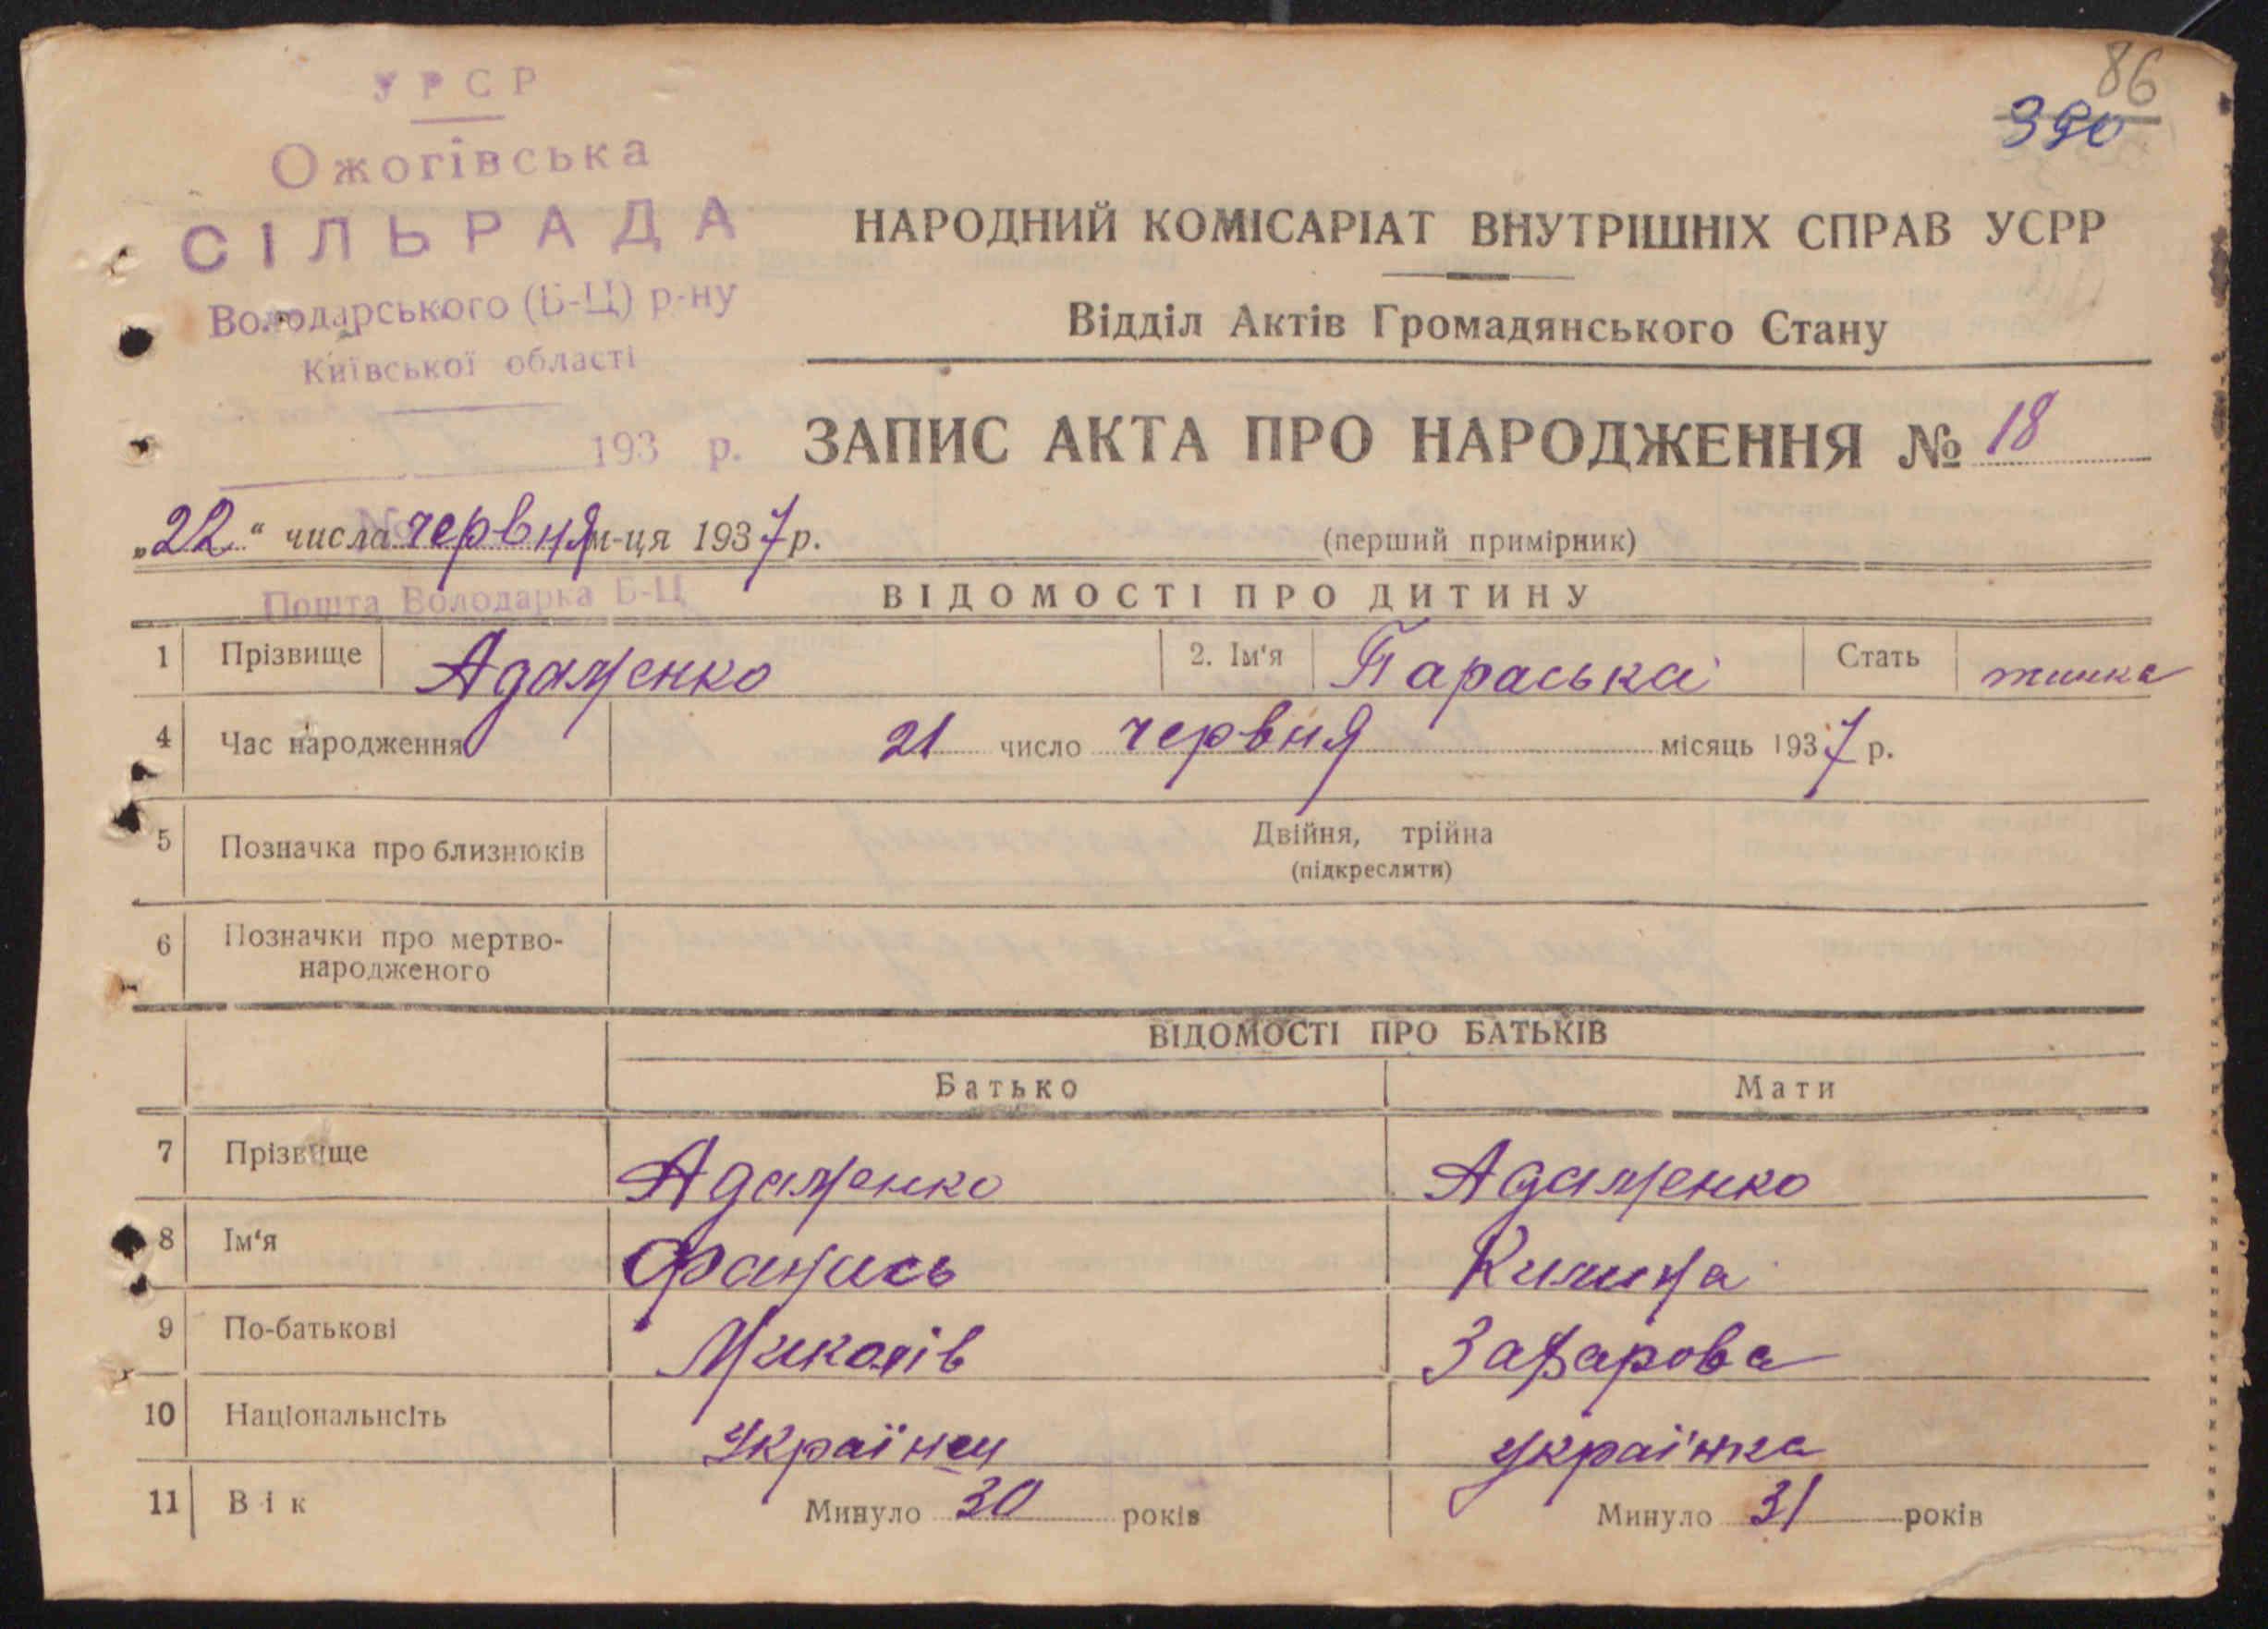 86
390
УРСР
Ожогівська
СІЛЬРАДА
Володарського (Б-Ц) р-ну
Київської області
193 р.
№
Пошта Володарка Б-Ц
НАРОДНИЙ КОМІСАРІАТ ВНУТРІШНІХ СПРАВ УСРР
Відділ Актів Громадянського Стану
ЗАПИС АКТА ПРО НАРОДЖЕННЯ № 18
„22“ числа червня м-ця 1937 р.
(перший примірник)
ВІДОМОСТІ ПРО ДИТИНУ
1 Прізвище Адаменко 2. Ім'я Параська Стать жинка
4 Час народження 21 число червня місяць 1937 р.
5 Позначка про близнюків Двійня, трійна
(підкреслити)
6 Позначки про мертво-
народженого
ВІДОМОСТІ ПРО БАТЬКІВ
Батько Мати
7 Прізвище Адаменко Адаменко
8 Ім'я Фанась Килина
9 По-батькові Миколів Захарова
10 Національнсіть Українец Українка
11 Вік Минуло 30 років Минуло 31 років